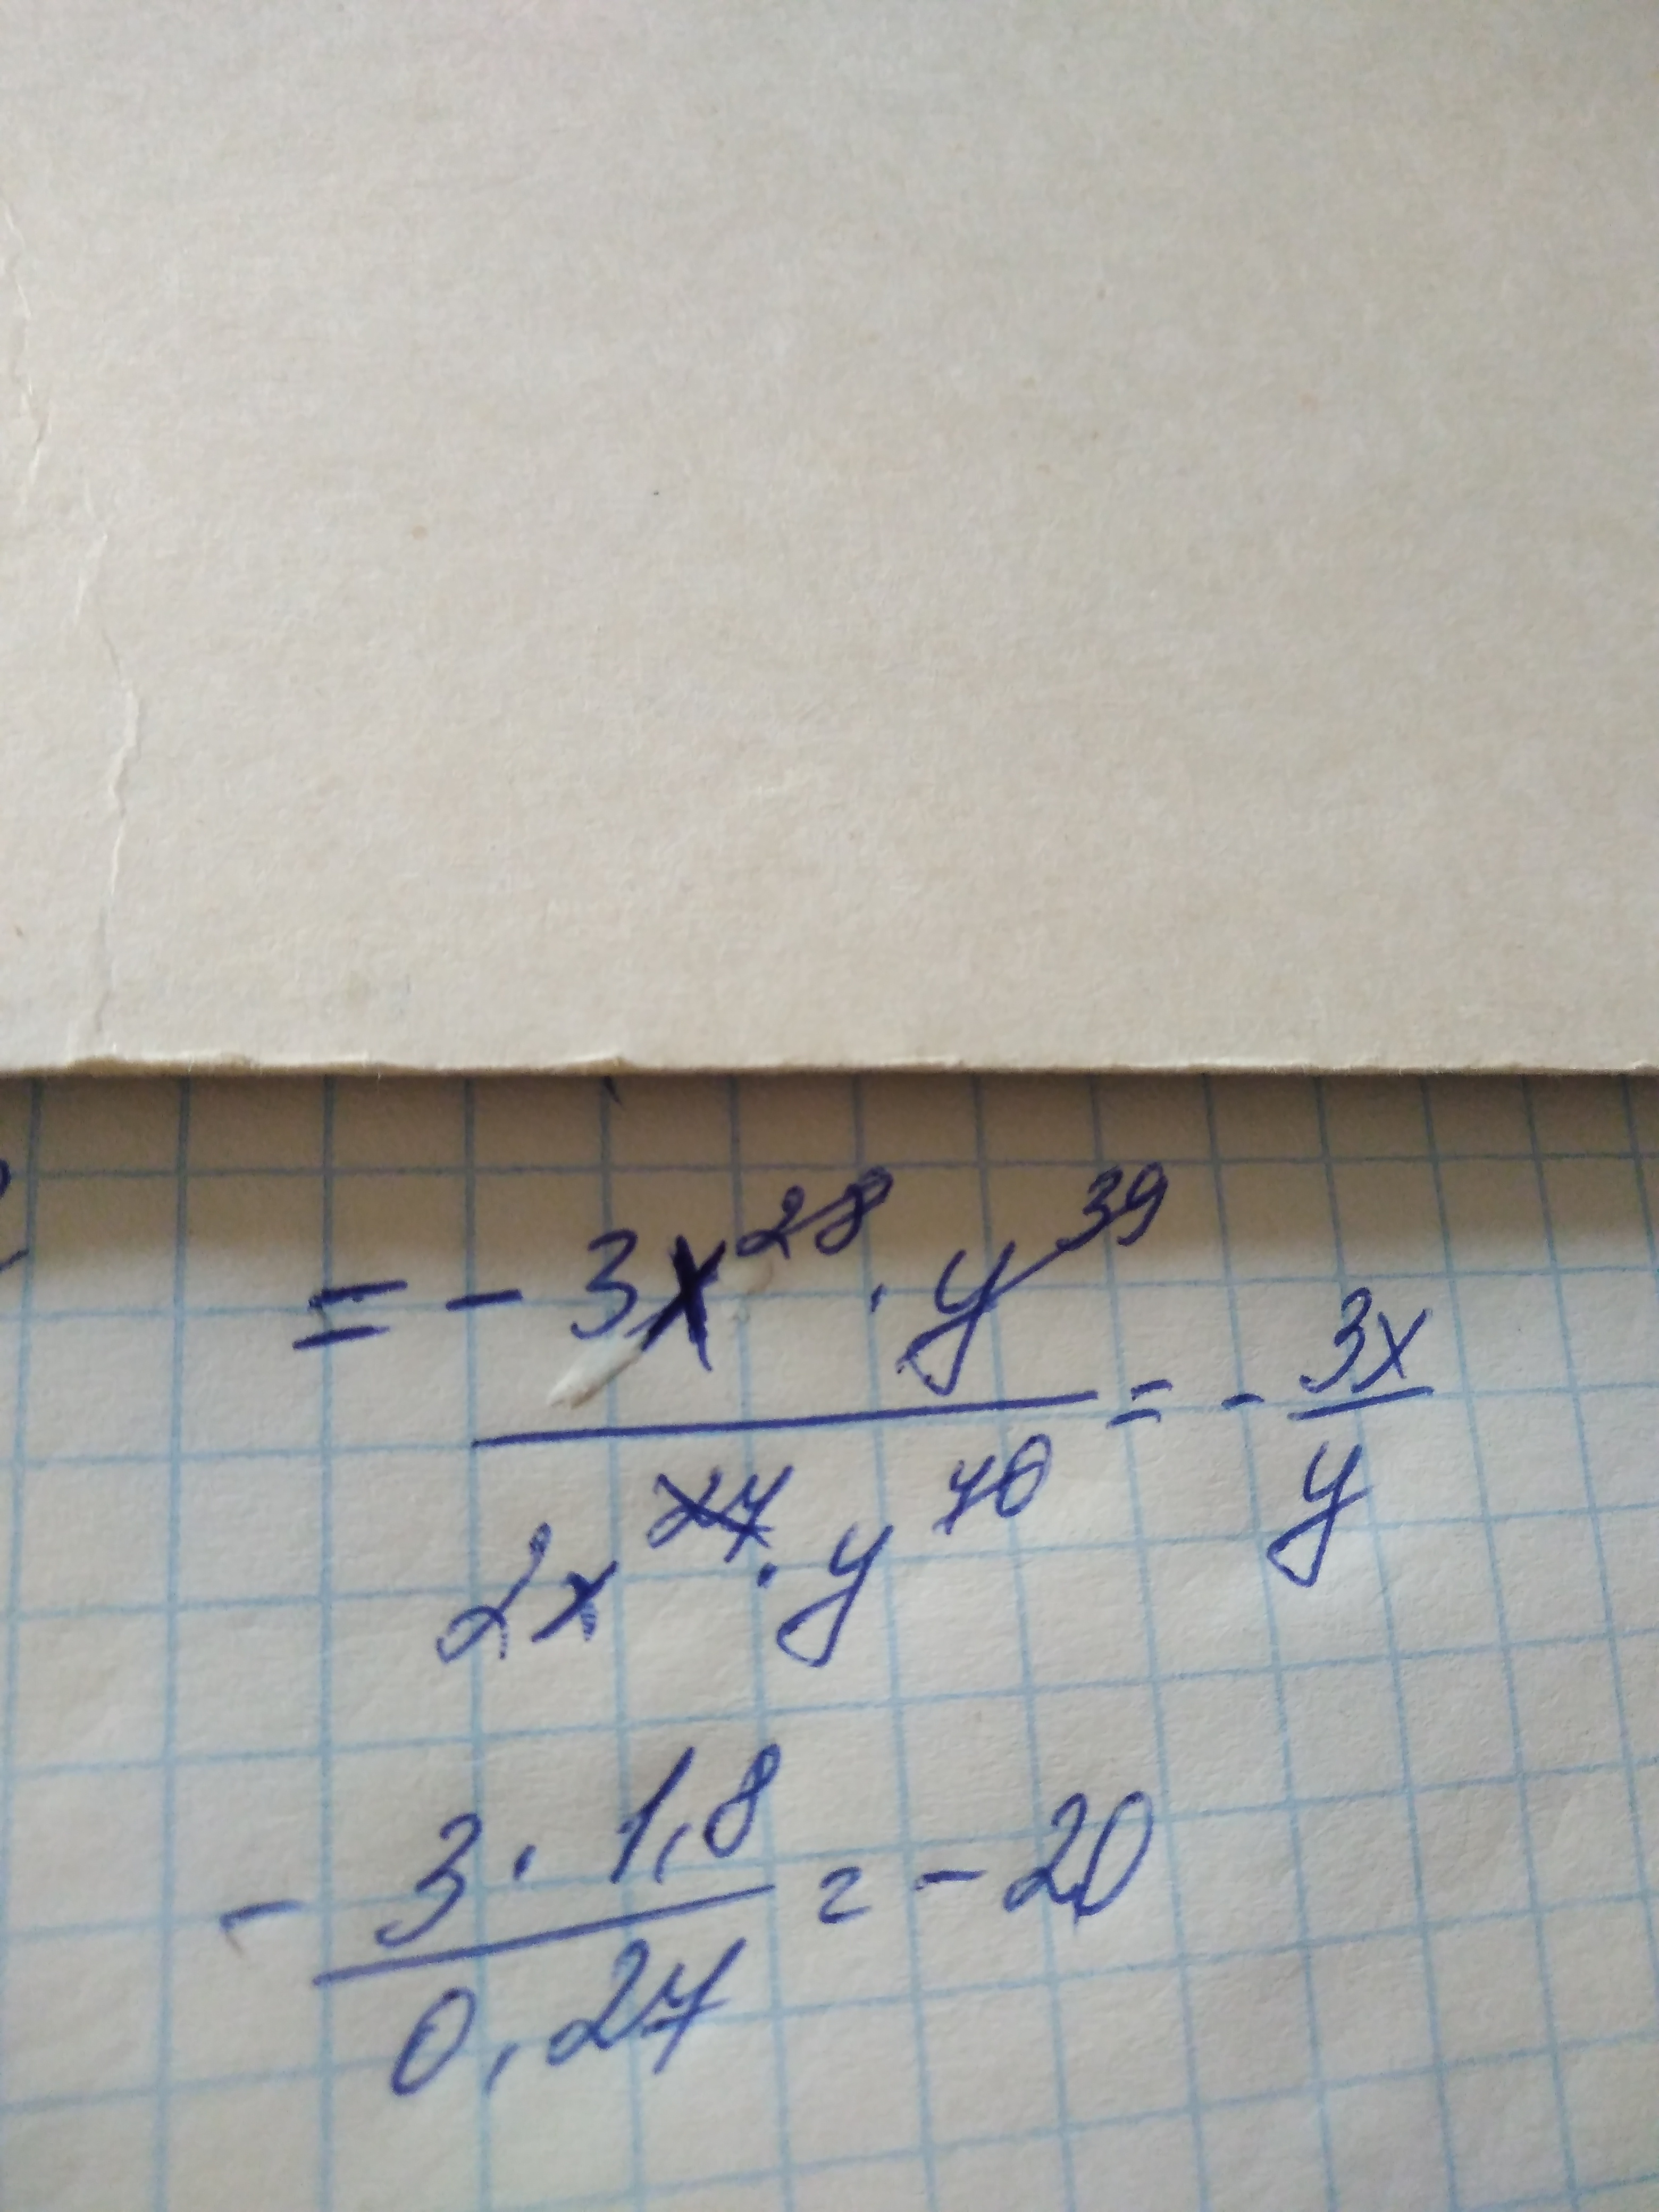 = - 3x^28 · y^39
2x^27 · y^40 = - 3x/y
- 3 · 1,8 / 0,27 = - 20